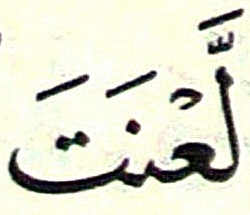 لَّعْنَتَ